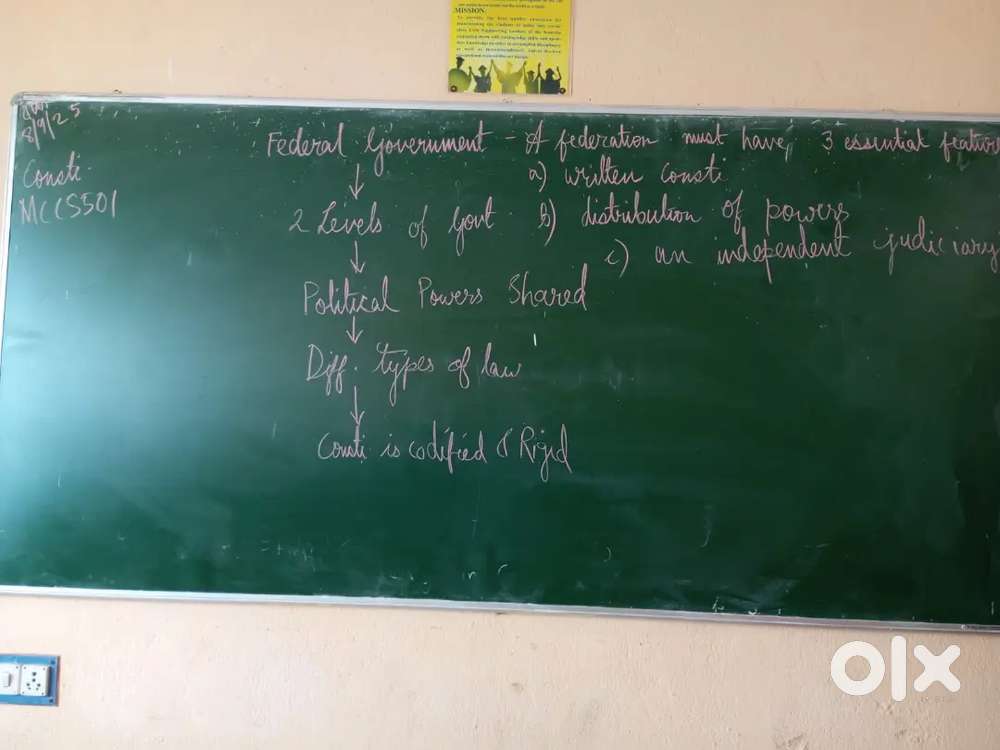 MISSION:
8/9/25
Consti.
MCCS501
Federal Government - A federation must have 3 essential feature
a) written consti
2 Levels of Govt b) distribution of powers
c) an independent judiciary
Political Powers Shared
Diff. types of law
Consti is codified & Rigid
olx